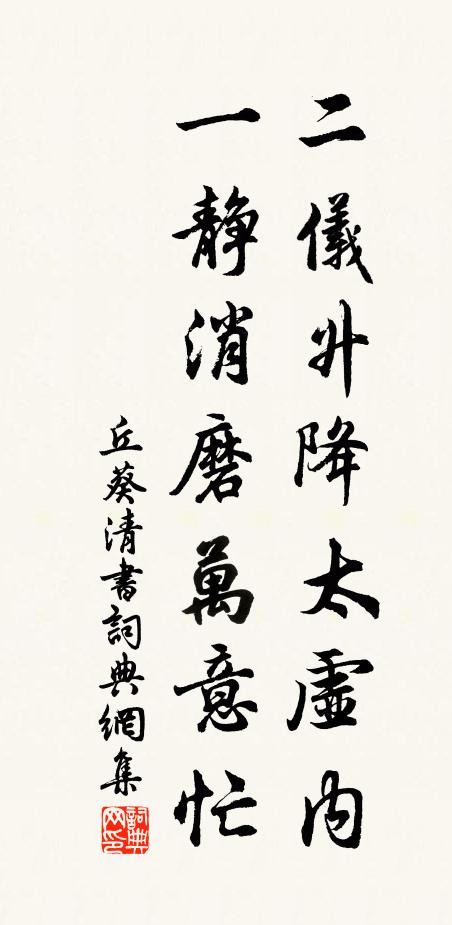 二儀升降太虛內
一靜消磨萬意忙
丘葵清書詞典網集
詞典网印